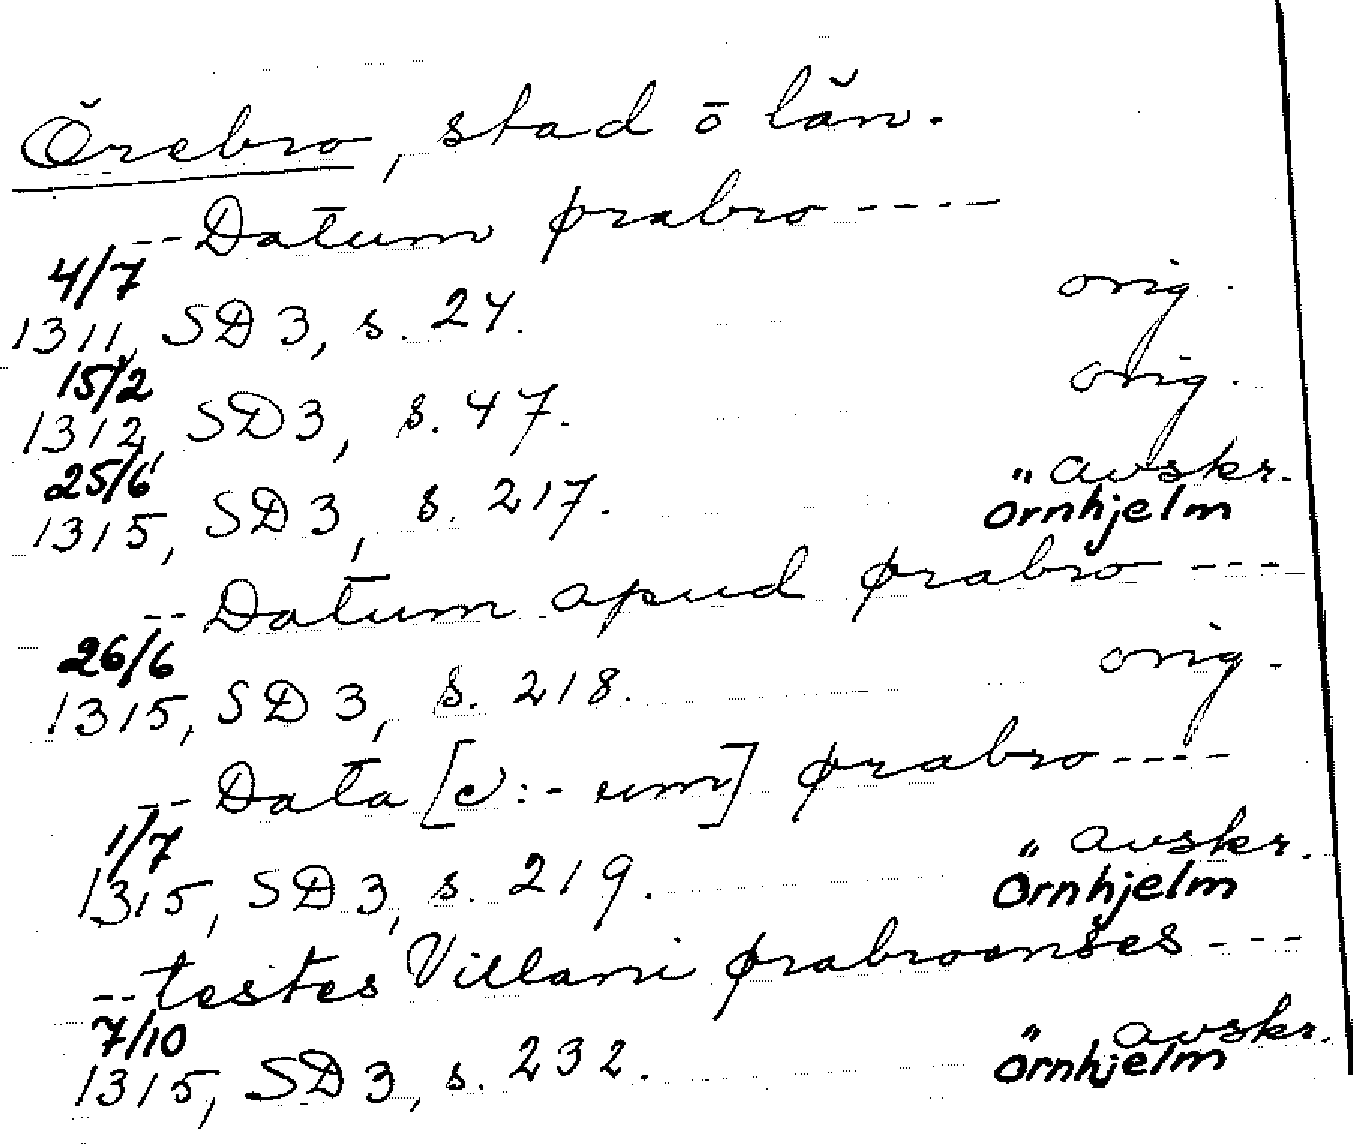 Örebro, stad o län.
-- Datum ørabro ----
4/7 1311, SD 3, s. 24. orig.
15/2 1312, SD 3, s. 47. orig.
25/6 1315, SD 3, s. 217. avskr. Örnhjelm
-- Datum apud ørabro ---
26/6 1315, SD 3, s. 218. orig.
-- Data [ɔ: - um] ørabro ----
1/7 1315, SD 3, s. 219. avskr. Örnhjelm
-- testes Villani ørabroenses ---
7/10 1315, SD 3, s. 232. avskr. Örnhjelm